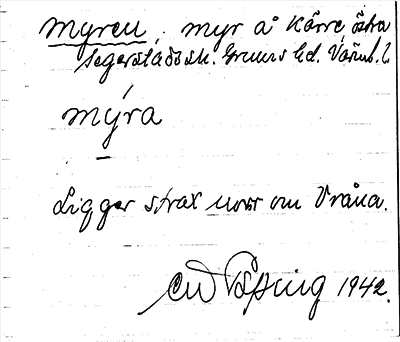 Myren, myr å Kärre, östra
Segerstads sk. Grums hd. Värml. l.
mýra
Ligger strax norr om Vråna.
1942.